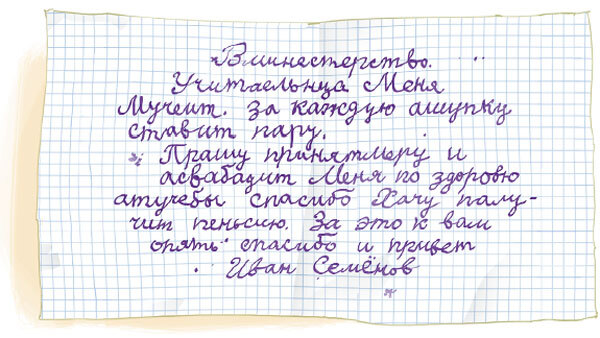 Вминестерство.
Учитаельнца Меня
Мучеит. За каждую ашупку
ставит пару.
Прашу принятмеру и
асвабадит Меня по здоровю
атучебы спасибо Хачу палу-
чит пеньсию. За это к вам
опять спасибо и привет
Иван Семёнов